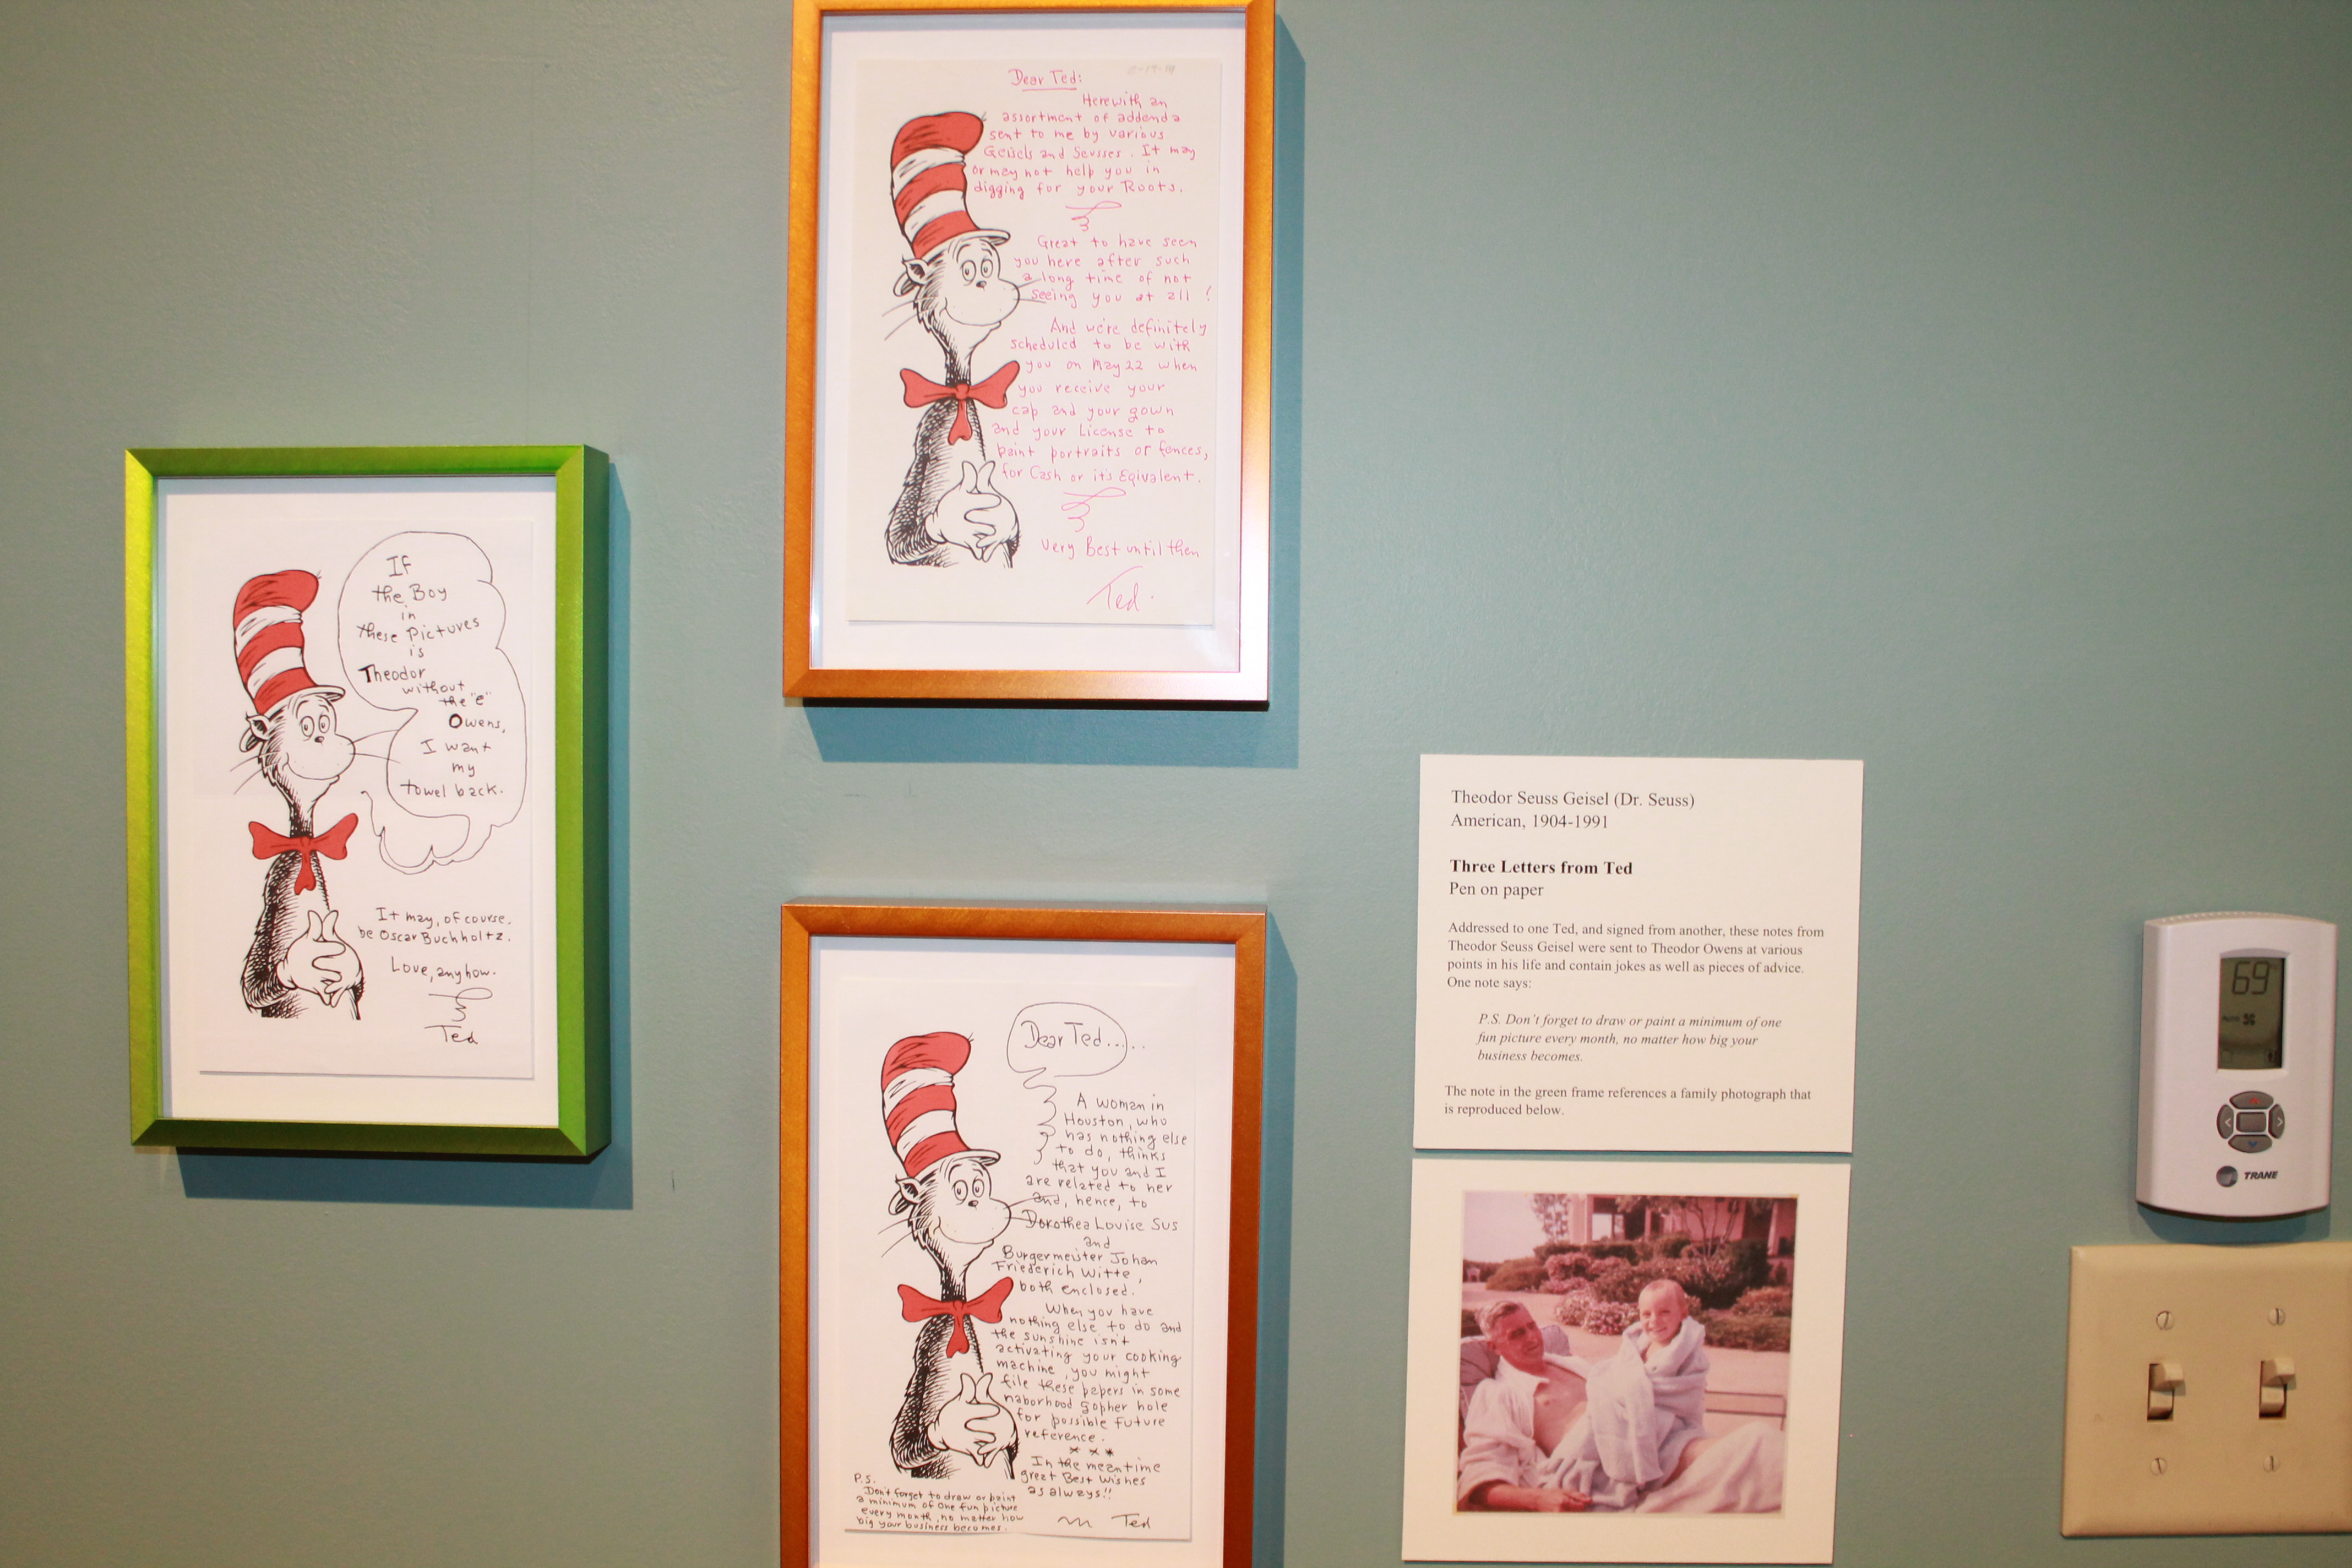 If
the Boy
in
these Pictures
is
Theodor
without
the "e"
Owens,
I want
my
towel back.
It may, of course,
be Oscar Buchholtz.
Love, anyhow.
Ted
Dear Ted:
Herewith an
assortment of addenda
sent to me by various
Geisels and Seusses. It may
or may not help you in
digging for your Roots.
Great to have seen
you here after such
a long time of not
seeing you at all!
And we're definitely
scheduled to be with
you on May 22 when
you receive your
cap and your gown
and your License to
paint portraits or fences,
for Cash or it's Eqivalent.
Very Best until then
Ted.
Dear Ted.....
A woman in
Houston, who
has nothing else
to do, thinks
that you and I
are related to her
and, hence, to
Dorothea Lovise Sus
and
Burgermeister Johan
Friederich Witte,
both enclosed.
When you have
nothing else to do and
the sunshine isn't
activating your cooking
machine, you might
file these papers in some
naborhood gopher hole
for possible future
reference.
* * *
In the meantime
great Best Wishes
as always!!
Ted
P.S.
Don't forget to draw or paint
a minimum of one fun picture
every month, no matter how
big your business becomes.
Theodor Seuss Geisel (Dr. Seuss)
American, 1904-1991
Three Letters from Ted
Pen on paper
Addressed to one Ted, and signed from another, these notes from
Theodor Seuss Geisel were sent to Theodor Owens at various
points in his life and contain jokes as well as pieces of advice.
One note says:
P.S. Don't forget to draw or paint a minimum of one
fun picture every month, no matter how big your
business becomes.
The note in the green frame references a family photograph that
is reproduced below.
69
TRANE